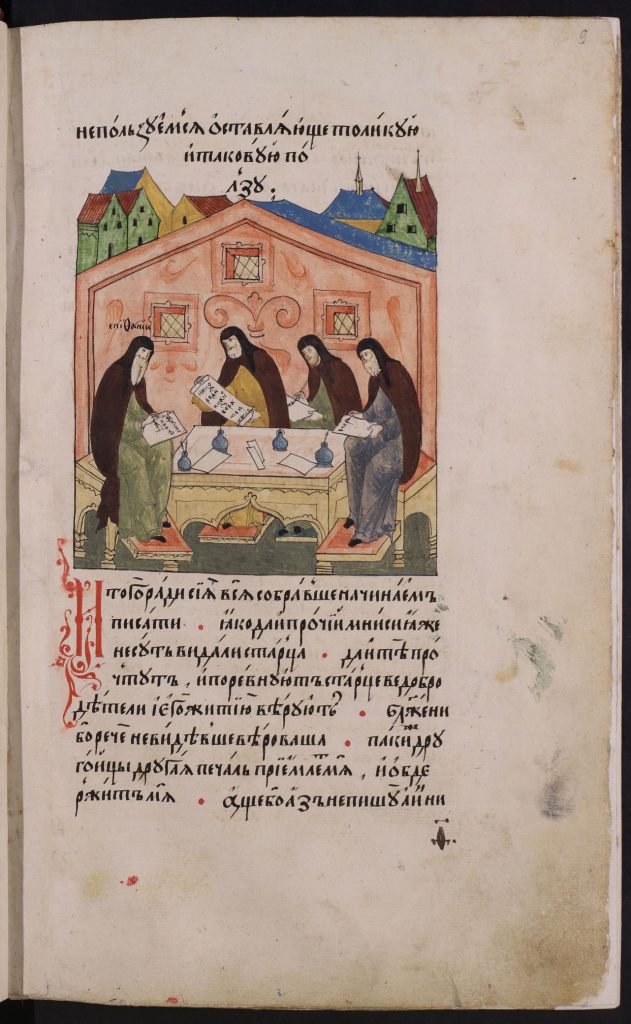 9
непользуемся оставляюще толикую
и таковую по
лзу .
епифаний
И того ради сия вся собравше начинаем
писати . яко да и прочии мниси яже
не суть видали старца . да и те про
чтут , и поревнуютъ старцеве добро
детели и его житию веруют . блжени
бо рече невидевше вероваша . паки дру
гоицы другая печаль приемлет мя , и обде
ржитъ мя . аще бо азъ не пишу а ини